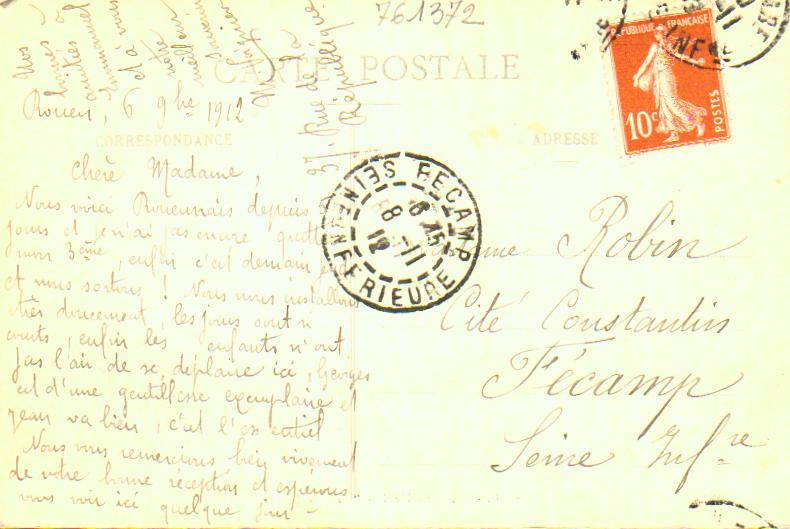 761372
CARTE POSTALE
CORRESPONDANCE
ADRESSE
RÉPUBLIQUE FRANÇAISE
10c
POSTES
Rouen, 6 9bre 1912
Chère Madame,
Nous voici Rouennais depuis
jours et je n'ai pas encore quitté
mon 3ème, enfin c'est demain
et nous sortons ! Nous nous installons
très doucement, les jours sont si
courts, enfin les enfants n'ont
pas l'air de se déplaire ici, Georges
est d'une gentillesse exemplaire et
Jean va bien, c'est l'essentiel
Nous vous remercions bien vivement
de votre bonne réception et espérons
vous voir ici quelque jour
Nos
bonnes
amitiés à
Emmanuel
et à vous
votre
meilleur
souvenir
37, Rue de la
République
FECAMP
SEINE INFERIEURE
8-11
12
Robin
Cité Constantin
Fécamp
Seine Infre